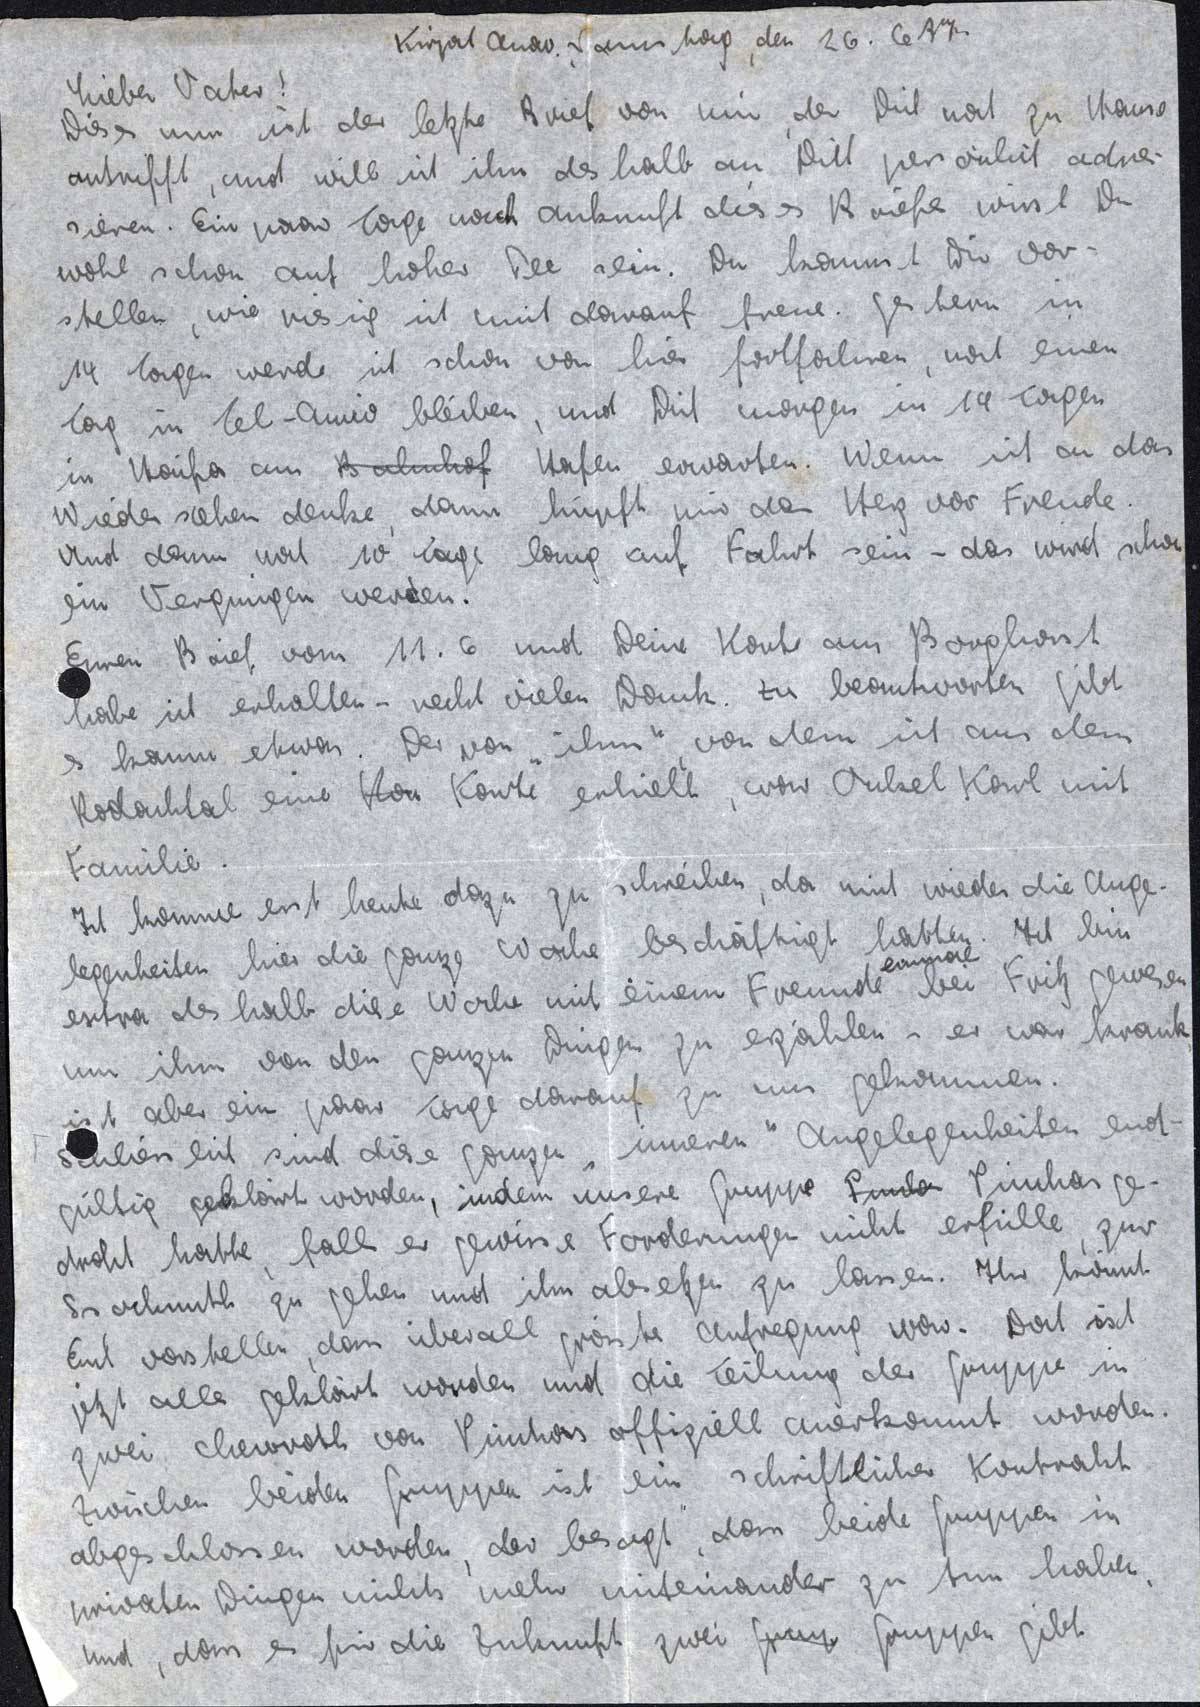 Kirjat Anav. Samstag, den 26. 6
Lieber Vater!
Dieses nun ist der letzte Brief von mir, der Dich noch zu Hause
antrifft, und will ich ihn deshalb an Dich persönlich adres-
sieren. Ein paar Tage nach Ankunft dieses Briefes wirst Du
wohl schon auf hoher See sein. Du kannst Dir vor-
stellen, wie riesig ich mich darauf freue. Gestern in
14 Tagen werde ich schon von hier fortfahren, noch einen
Tag in Tel-Awiw bleiben, und Dich morgen in 14 Tagen
in Haifa am Bahnhof Hafen erwarten. Wenn ich an das
Wiedersehen denke, dann hüpft mir das Herz vor Freude.
Und dann noch 10 Tage lang auf Fahrt sein - das wird schon
ein Vergnügen werden.
Euren Brief vom 11. 6 und Deine Karte aus Borghorst
habe ich erhalten - recht vielen Dank. Zu beantworten gibt
es kaum etwas. Der von „ihm“, von dem ich aus dem
Rodachtal eine Kar Karte erhielt, war Onkel Karl mit
Familie.
Ich komme erst heute dazu zu schreiben, da mich wieder die Ange-
legenheiten hier die ganze Woche beschäftigt hatten. Ich bin
extra deshalb diese Woche mit einem Freunde einmal bei Fritz gewesen
um ihm von den ganzen Dingen zu erzählen - er war krank
ist aber ein paar Tage darauf zu uns gekommen.
Schliesslich sind diese ganzen „inneren“ Angelegenheiten end-
gültig geklärt worden, indem unsere Gruppe Pinchas ge-
droht hatte, falls er gewisse Forderungen nicht erfülle, zur
Ssochnuth zu gehen und ihn absetzen zu lassen. Ihr könnt
Euch vorstellen, dass überall grösste Aufregung war. Doch ist
jetzt alles geklärt worden und die Teilung der Gruppe in
zwei Chewroth von Pinchas offiziell anerkannt worden.
Zwischen beiden Gruppen ist ein schriftlicher Kontrakt
abgeschlossen worden, der besagt, dass beide Gruppen in
privaten Dingen nichts mehr miteinander zu tun haben,
und, dass es für die Zukunft zwei Grup Gruppen gibt